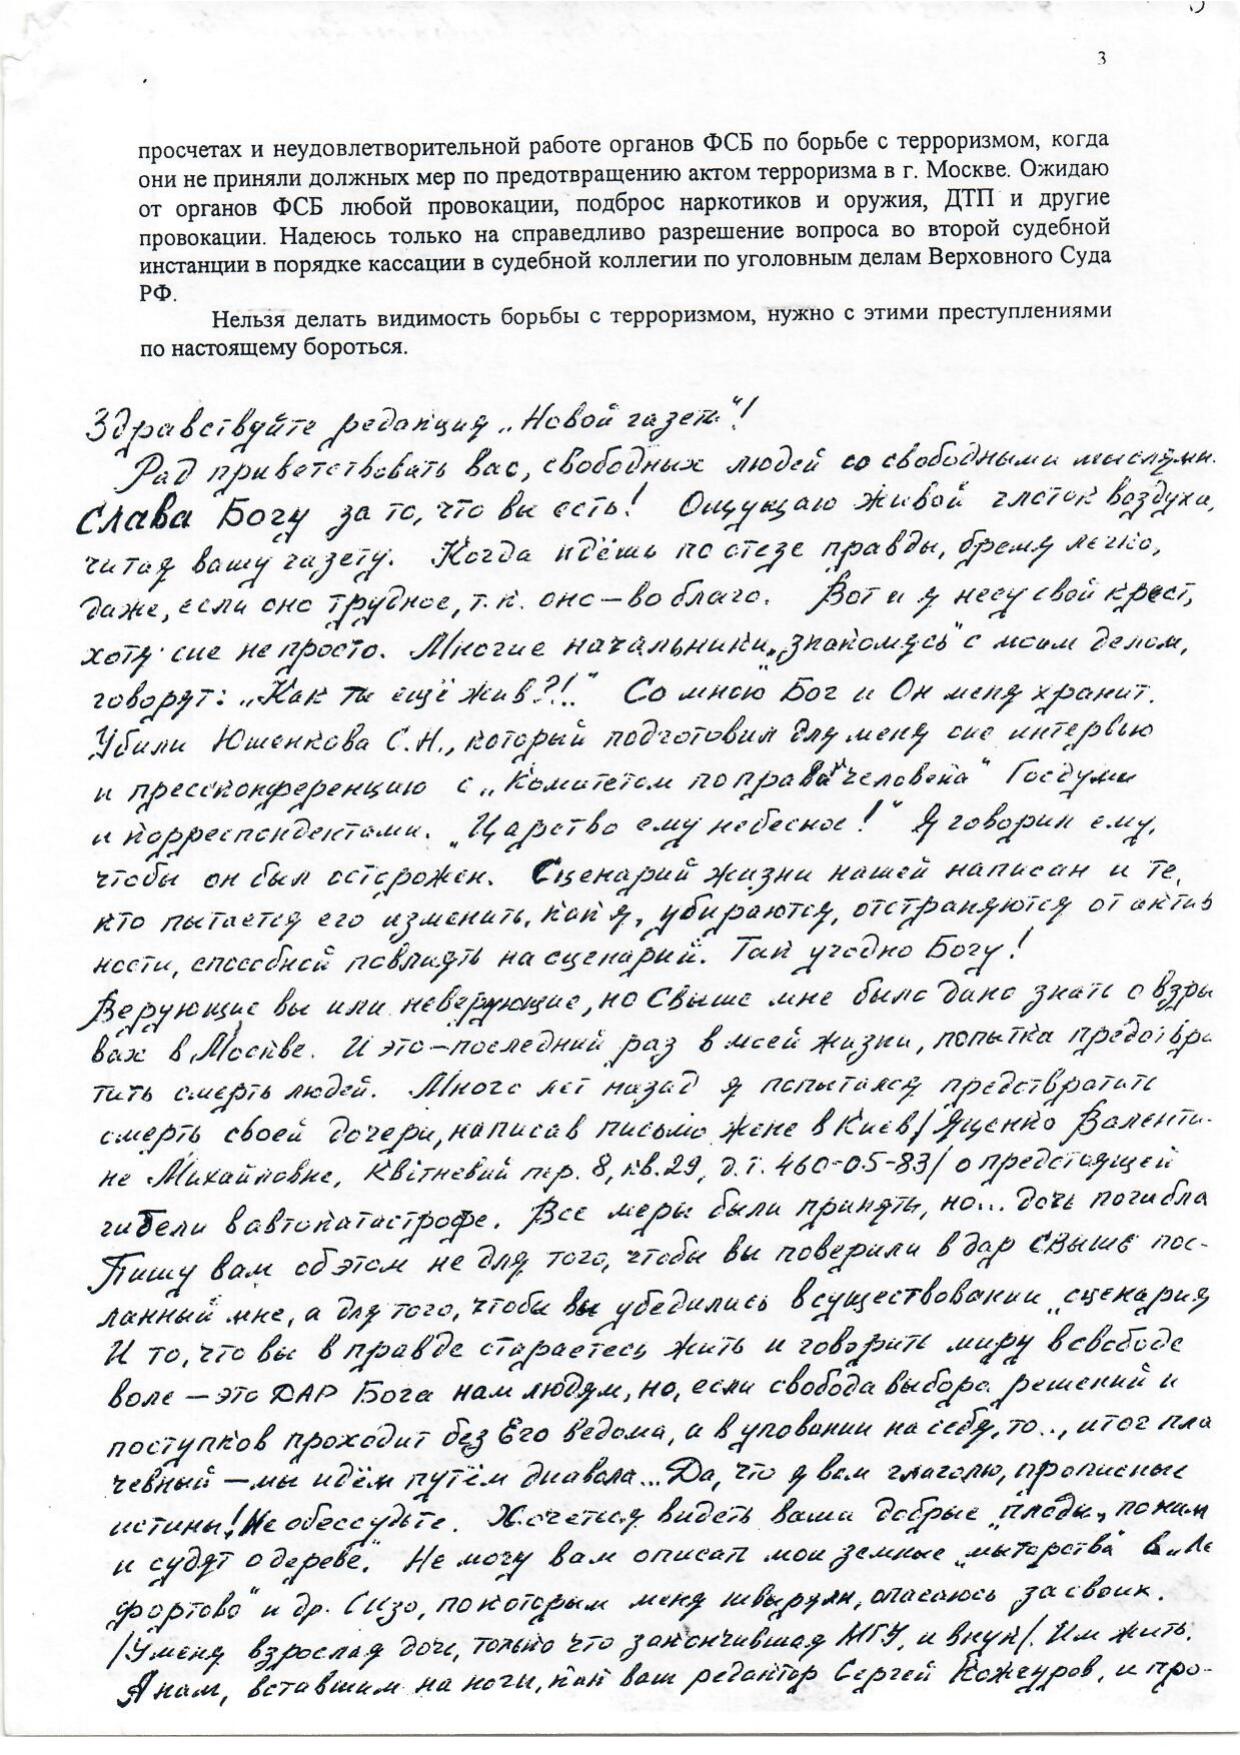 3
просчетах и неудовлетворительной работе органов ФСБ по борьбе с терроризмом, когда
они не приняли должных мер по предотвращению актом терроризма в г. Москве. Ожидаю
от органов ФСБ любой провокации, подброс наркотиков и оружия, ДТП и другие
провокации. Надеюсь только на справедливо разрешение вопроса во второй судебной
инстанции в порядке кассации в судебной коллегии по уголовным делам Верховного Суда
РФ.
Нельзя делать видимость борьбы с терроризмом, нужно с этими преступлениями
по настоящему бороться.
Здравствуйте редакция „Новой газеты"!
Рад приветствовать вас, свободных людей со свободными мыслями.
Слава Богу за то, что вы есть! Ощущаю живой глоток воздуха,
читая вашу газету. Когда идёшь по стезе правды, бремя легко,
даже, если оно трудное, т.к. оно – во благо. Вот и я несу свой крест,
хотя сие не просто. Многие начальники, „знакомясь" с моим делом,
говорят: „Как ты ещё жив?!" Со мною Бог и Он меня хранит.
Убили Юшенкова С.Н., который подготовил для меня сие интервью
и прессконференцию с „Комитетом по правам человека" Госдумы
и корреспондентами. „Царство ему небесное!" Я говорил ему,
чтобы он был осторожен. Сценарий жизни нашей написан и те,
кто пытается его изменить, как я, убираются, отстраняются от актив
ности, способной повлиять на сценарий. Так угодно Богу!
Верующие вы или неверующие, но Свыше мне было дано знать о взры
вах в Москве. И это – последний раз в моей жизни, попытка предотвра
тить смерть людей. Много лет назад я попытался предотвратить
смерть своей дочери, написав письмо жене в Киев /Яценко Валенти-
не Михайловне, Квітневий пер. 8, кв. 29, д.т. 460-05-83/ о предстоящей
гибели в автокатастрофе. Все меры были приняты, но... дочь погибла
Пишу вам об этом не для того, чтобы вы поверили в дар свыше пос-
ланный мне, а для того, чтобы вы убедились в существовании „сценария
И то, что вы в правде стараетесь жить и говорить миру в свободе
воле – это ДАР Бога нам людям, но, если свобода выбора решений и
поступков проходит без Его ведома, а в уповании на себя, то.., итог пла
чевный – мы идём путём диавола... Да, что я вам глаголю, прописные
истины! Не обессудьте. Хочется видеть ваши добрые „плоды, по ним
и судят о дереве." Не могу вам описать мои земные „мытарства" в „Ле
фортово" и др. Сизо, по которым меня швыряли, опасаюсь за своих.
/У меня взрослая дочь, только что закончившая МГУ, и внук/. Им жить.
А нам, вставшим на ночи, как ваш редактор Сергей Кожеуров, и про-